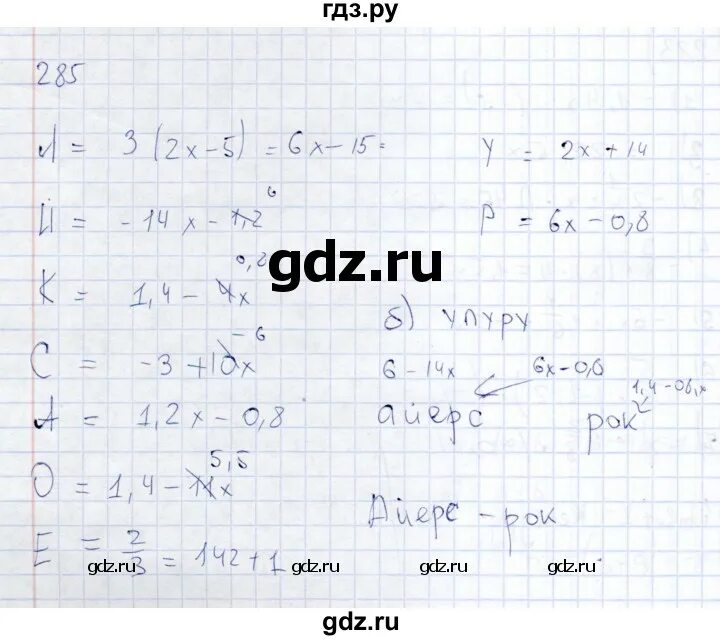 гдз.ру
285
Л = 3(2x-5) = 6x-15=
У = 2x+14
6
Й = -14x-1,2
Р = 6x-0,8
gdz.ru
0,2
К = 1,4-4x
б) УЛУРУ
-6
С = -3+10x
6-14x
6x-0,6
А = 1,2x-0,8
айерс
рок
5,5
О = 1,4-11x
Айерс-рок
Е = 2/3 = 142+1
gdz.ru gdz.ru gdz.ru gdz.ru
gdz.ru